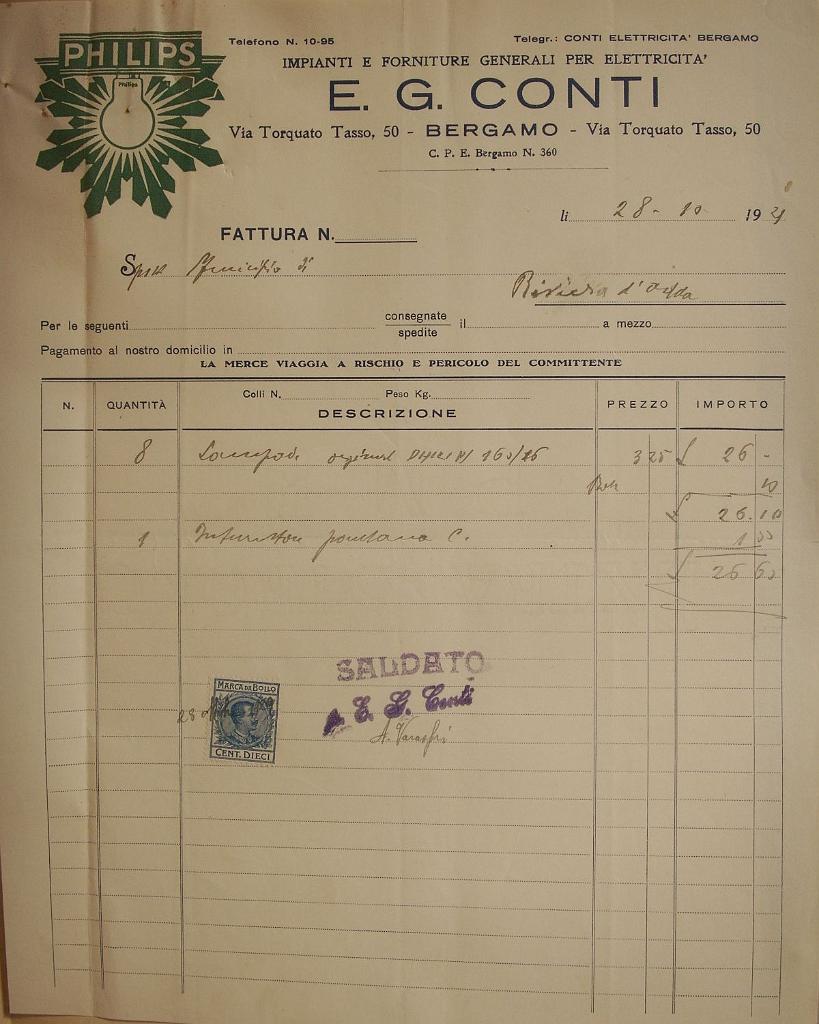 PHILIPS
Philips
Telefono N. 10-95 Telegr.: CONTI ELETTRICITA' BERGAMO
IMPIANTI E FORNITURE GENERALI PER ELETTRICITA'
E. G. CONTI
Via Torquato Tasso, 50 - BERGAMO - Via Torquato Tasso, 50
C. P. E. Bergamo N. 360
li 28 - 10 19
FATTURA N.
Municipio di
Riviera d'Adda
Per le seguenti consegnate spedite il a mezzo
Pagamento al nostro domicilio in
LA MERCE VIAGGIA A RISCHIO E PERICOLO DEL COMMITTENTE
Colli N. Peso Kg.
N. QUANTITÀ DESCRIZIONE PREZZO IMPORTO
8 Lampade 160/16 3 25 26 -
10
26.10
1 C.
SALDATO
p. E. G. Conti
MARCA DA BOLLO
28
CENT. DIECI